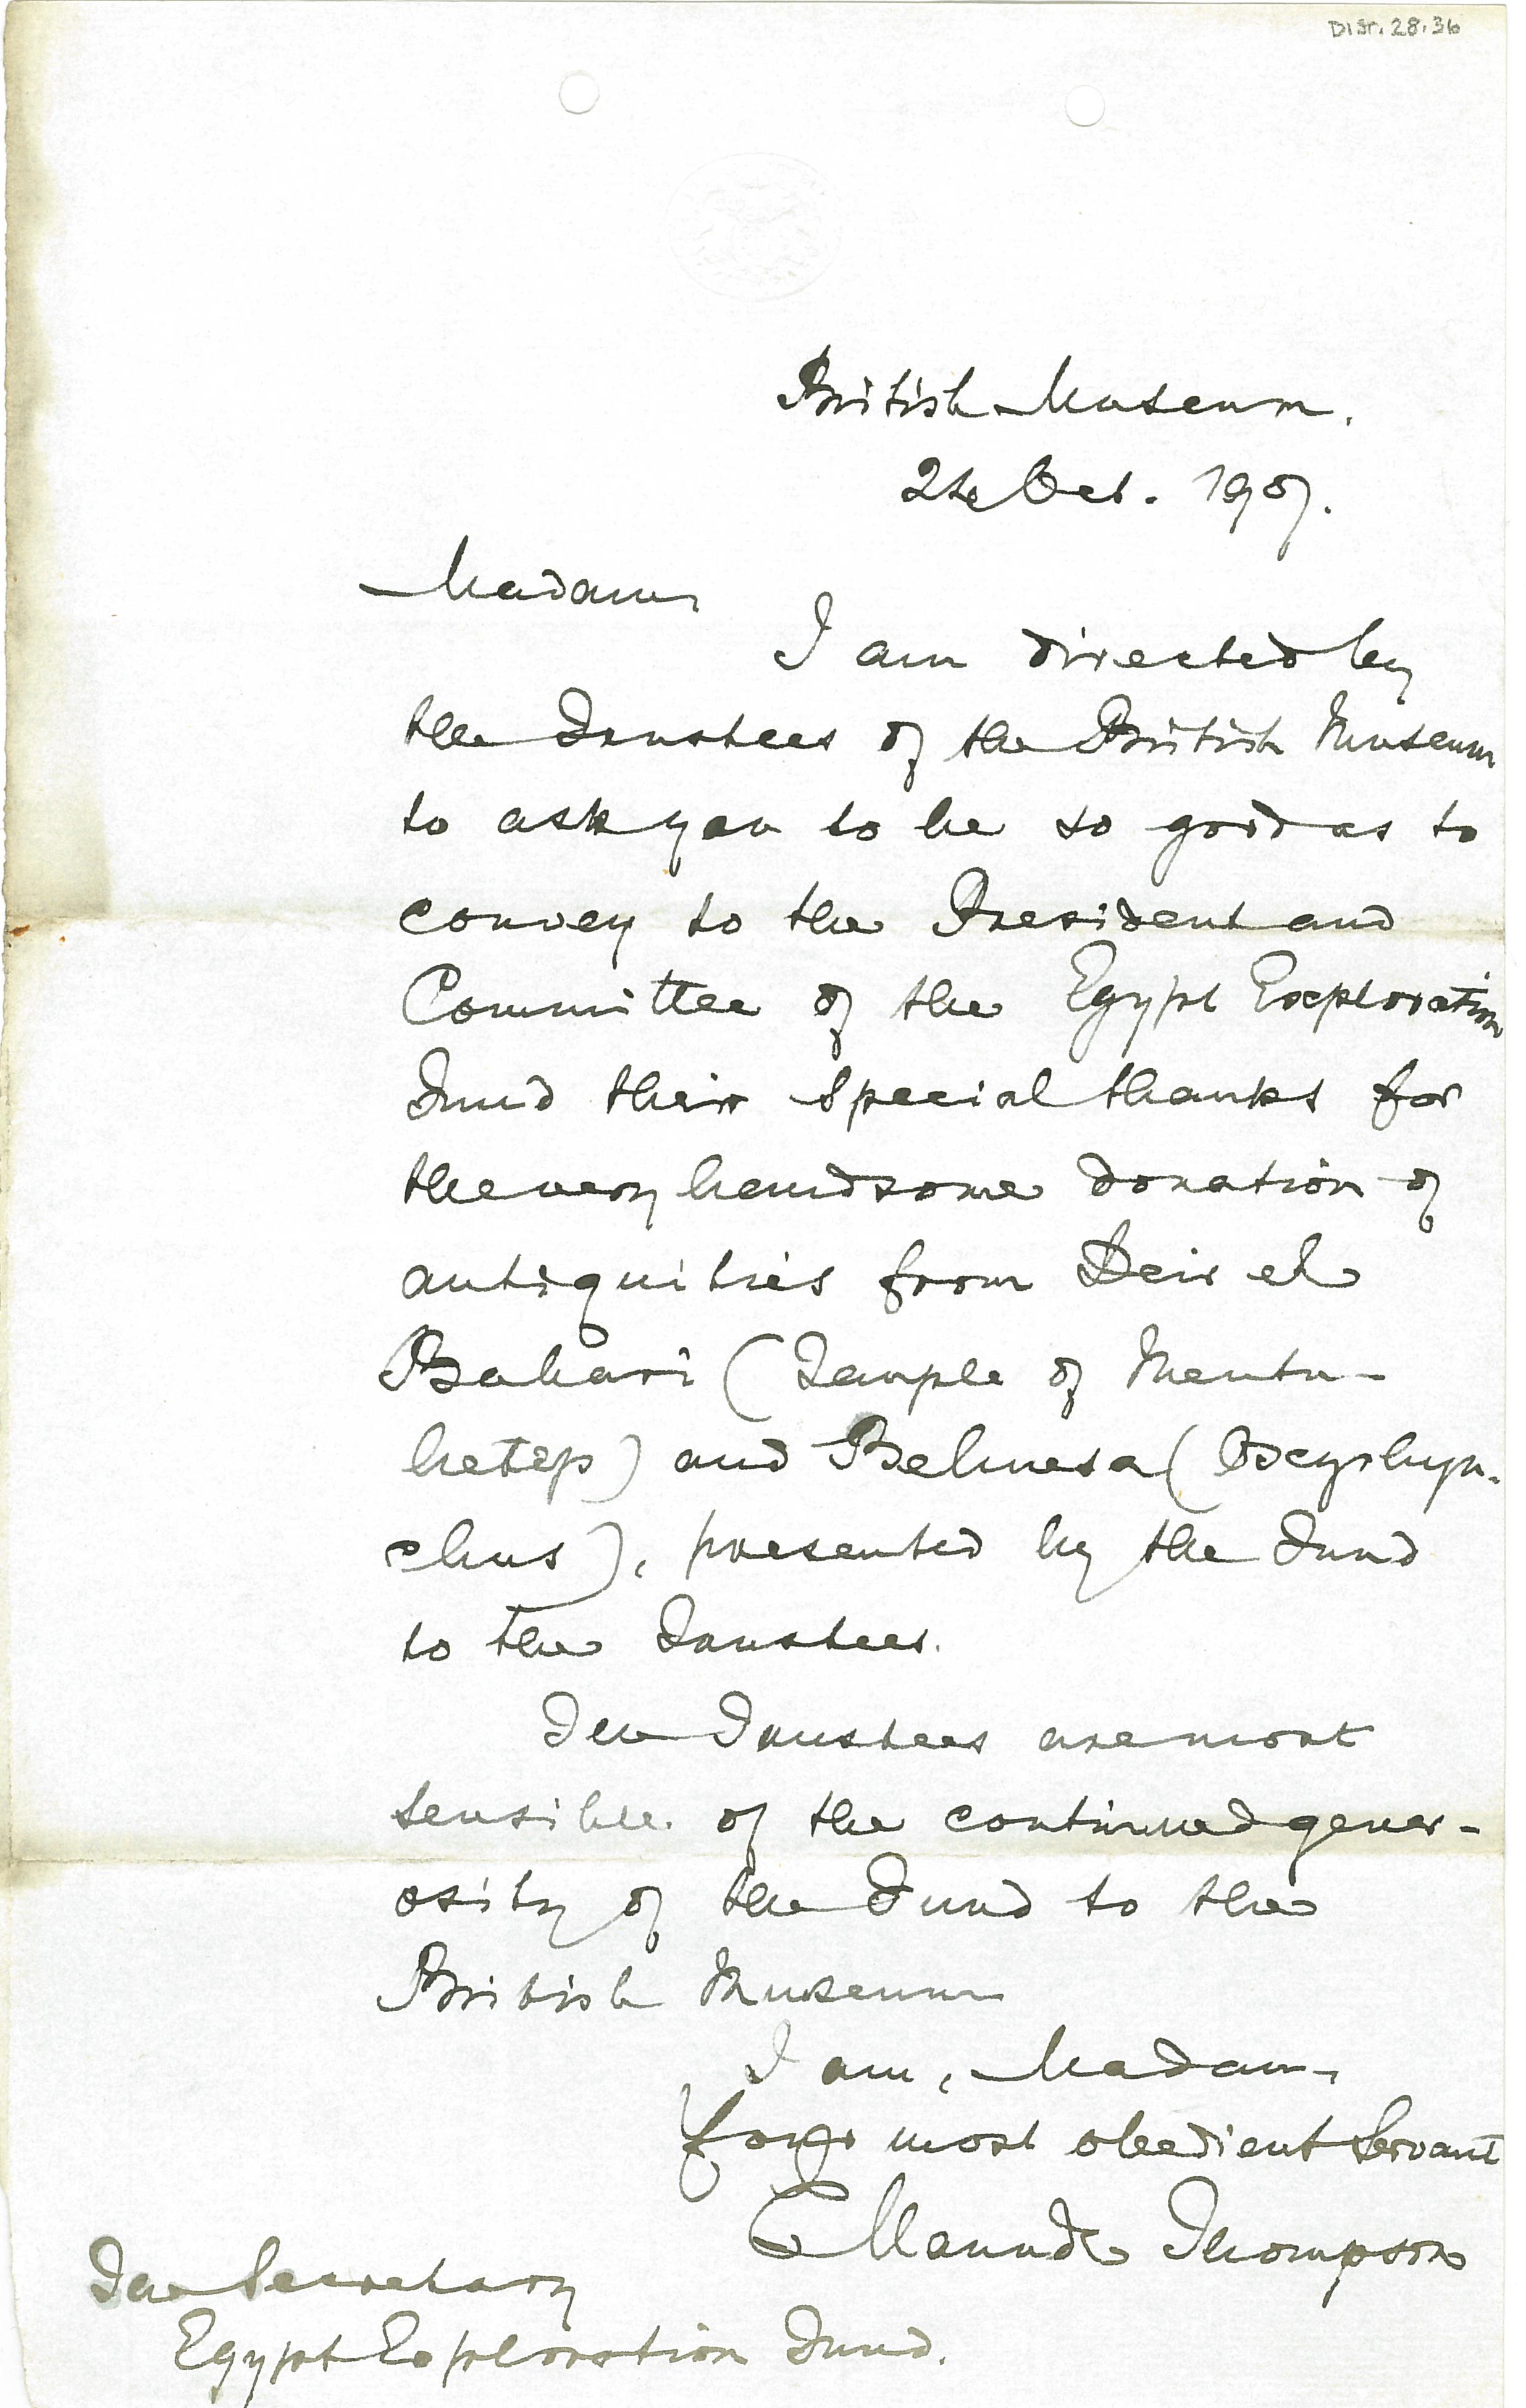 DIST. 28.36
British Museum.
Oct. 1907.
Madam
I am directed by
the Trustees of the British Museum
to ask you to be so good as to
convey to the President and
Committee of the Egypt Exploration
Fund their special thanks for
the very handsome donation of
antiquities from Deir el
Bahari (Temple of Mentu-
hetep) and Behnesa (Oxyrhyn-
chus), presented by the Fund
to the Trustees.
The Trustees are most
sensible of the continued gener-
osity of the Fund to the
British Museum
I am, Madam,
Your most obedient Servant
E Maunde Thompson
The Secretary
Egypt Exploration Fund.